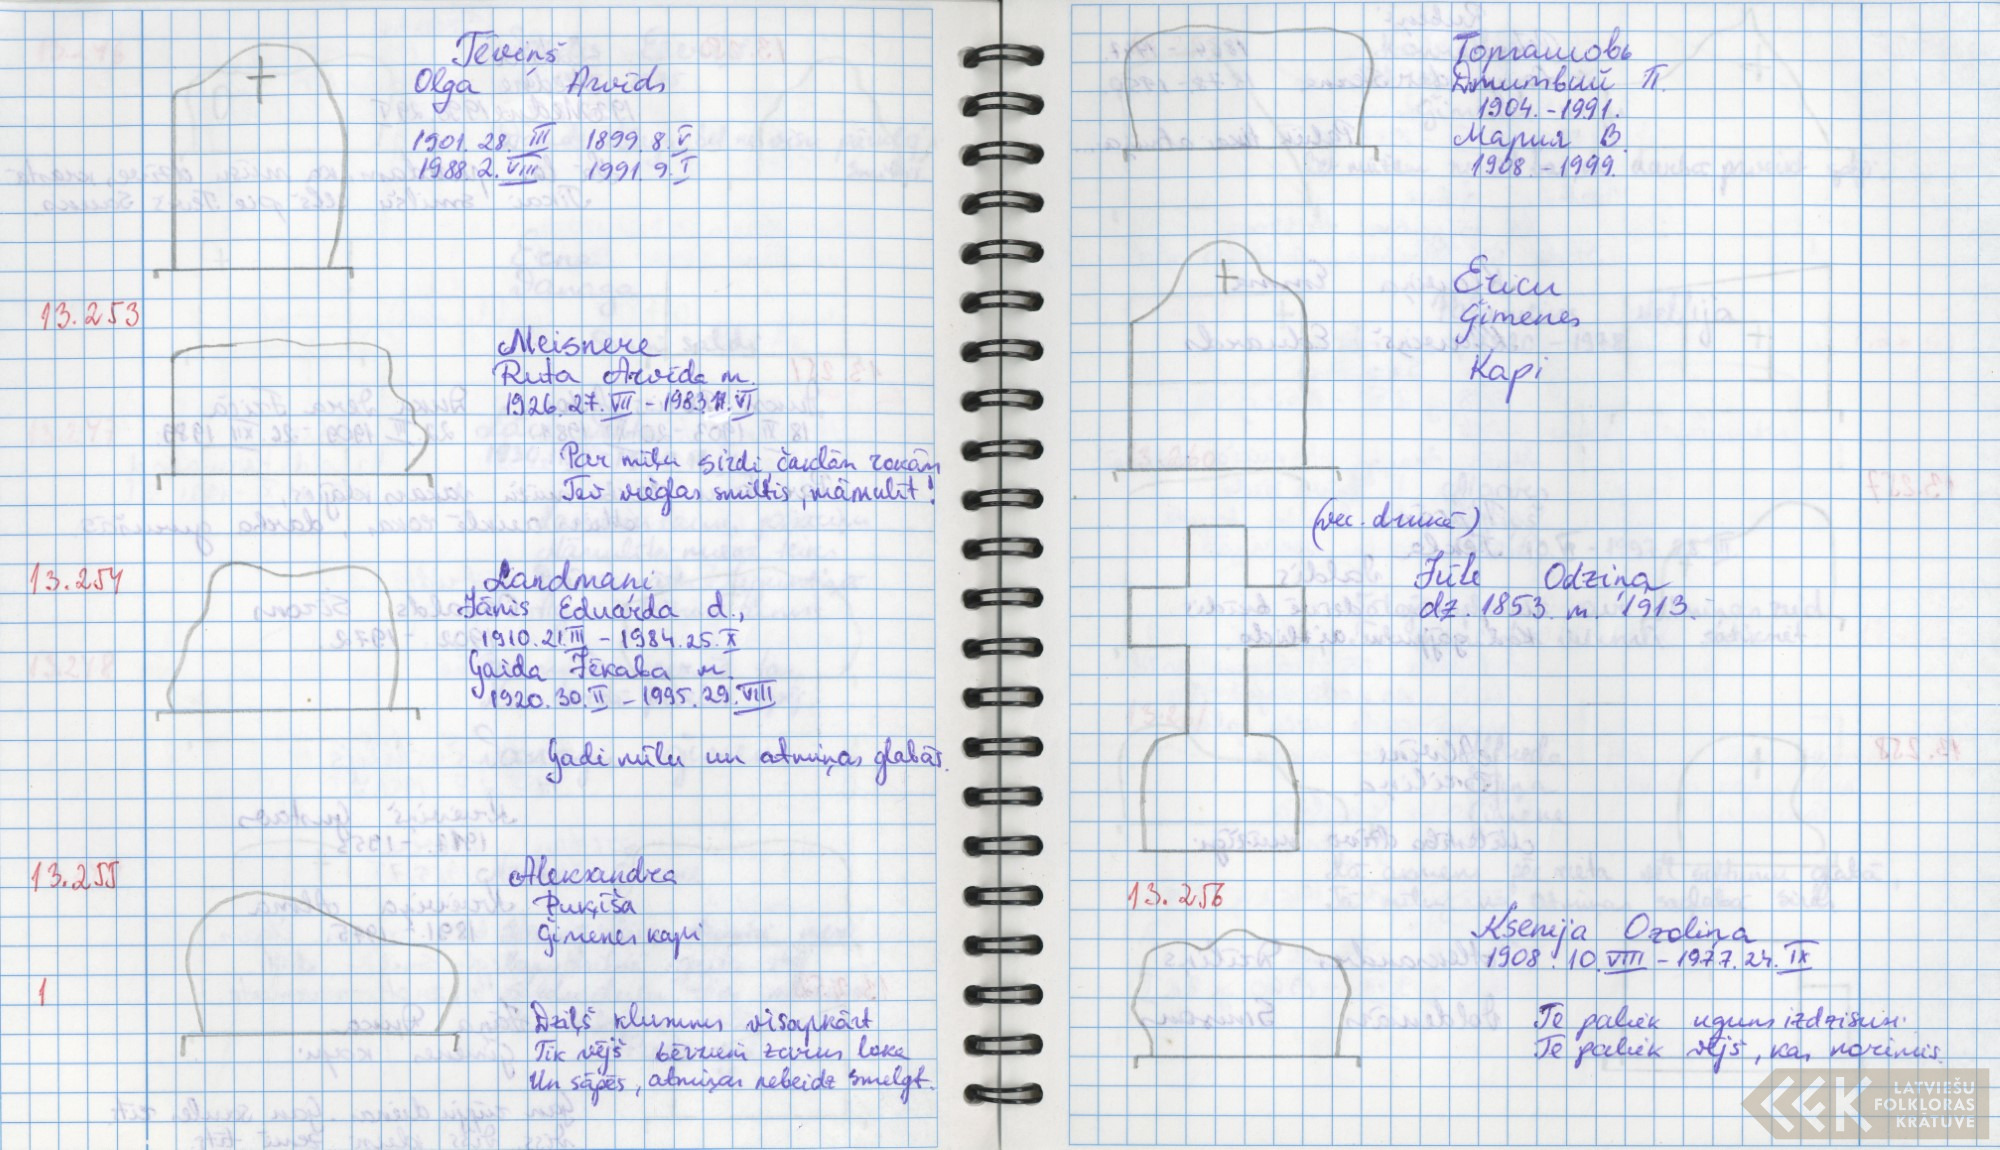 Tēviņš
Olga Arvīds
1901. 28. III 1899. 8. V
1988. 2. VIII 1991 9. I
13.253
Meisnere
Ruta Arvīda m.
1926. 27. VII - 1983. 17. VI
Par mīļu sirdi, čaklām rokām
Tev vieglas smiltis, māmulīt!
13.254
Landmaņi
Jānis Eduarda d.,
1910. 21. III - 1984. 25. X
Gaida Jēkaba m.
1920. 30. II - 1995. 29. VIII
Gadi mīlu un atmiņas glabās.
13.255
Aleksandra
Puķīša
ģimenes kapi
1
Dziļš klusums visapkārt
Tik vējš bērziem zarus loka
Un sāpēs, atmiņas nebeidz smelgt.
Торгашовь
Дмитвий П.
1904. - 1991.
Мария В.
1908. - 1999.
Ēriču
Ģimenes
Kapi
(vec. drukā)
Jūle Odziņa
dz. 1853. m. 1913.
13.256
Ksenija Ozoliņa
1908. 10. VIII - 1977. 24. IX
Te paliek uguns izdzisusi.
Te paliek vējš, kas norimis.
LATVIEŠU
FOLKLORAS
KRĀTUVE